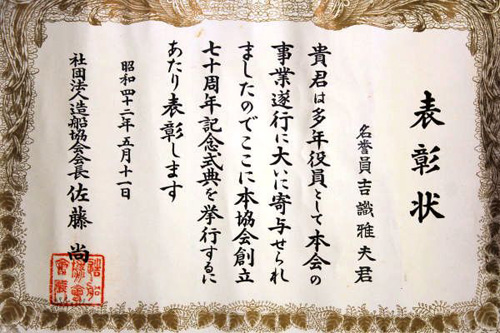 表彰状
名誉員吉識雅夫君
貴君は多年役員として本会の
事業遂行に大いに寄与せられ
ましたのでここに本協会創立
七十周年記念式典を挙行するに
あたり表彰します
昭和四十二年五月十一日
社団法人造船協会会長佐藤尚